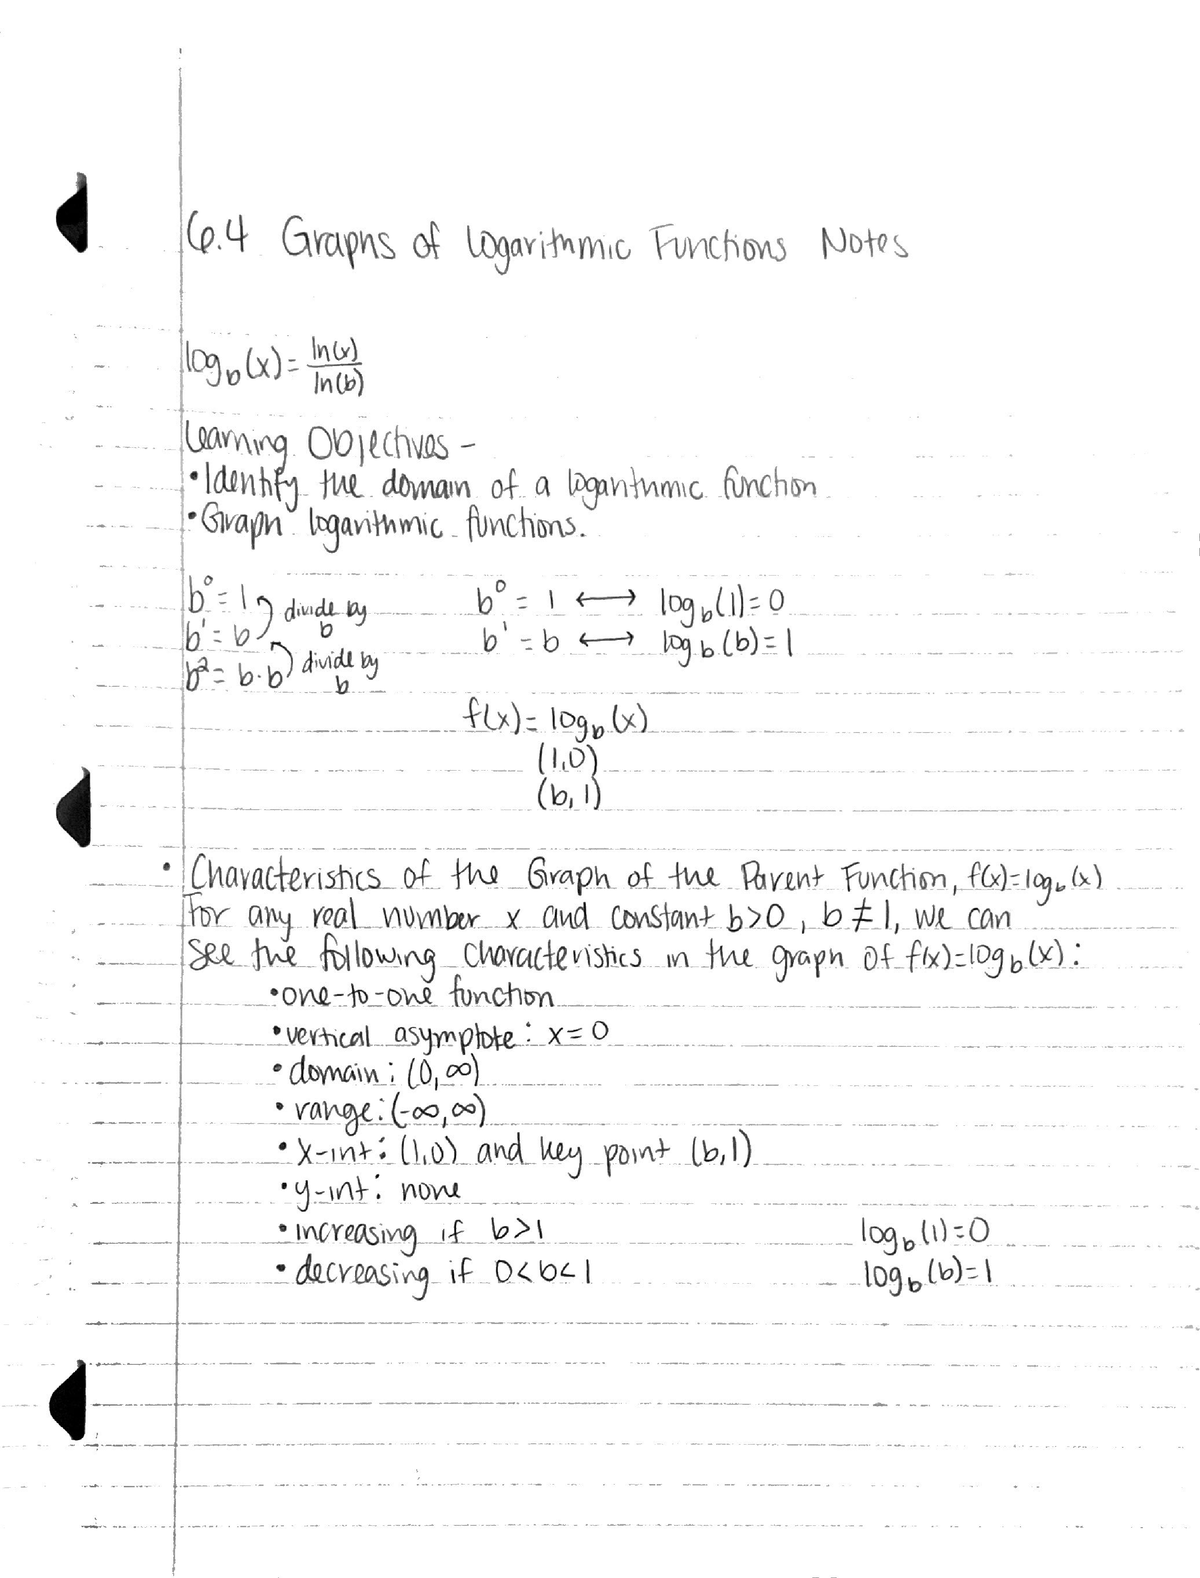 6.4 Graphs of Logarithmic Functions Notes
log_b(x) = ln(x)/ln(b)
Learning Objectives -
• Identify the domain of a logarithmic function
• Graph logarithmic functions.
b⁰ = 1 divide by b
b¹ = b
b² = b·b divide by b
b⁰ = 1 ⟷ log_b(1) = 0
b¹ = b ⟷ log_b(b) = 1
f(x) = log_b(x)
(1,0)
(b,1)
• Characteristics of the Graph of the Parent Function, f(x)=log_b(x)
For any real number x and constant b>0, b≠1, we can
see the following characteristics in the graph of f(x)=log_b(x):
• one-to-one function
• vertical asymptote: x=0
• domain: (0,∞)
• range: (-∞,∞)
• x-int: (1,0) and key point (b,1)
• y-int: none
• increasing if b>1
• decreasing if 0<b<1
log_b(1)=0
log_b(b)=1